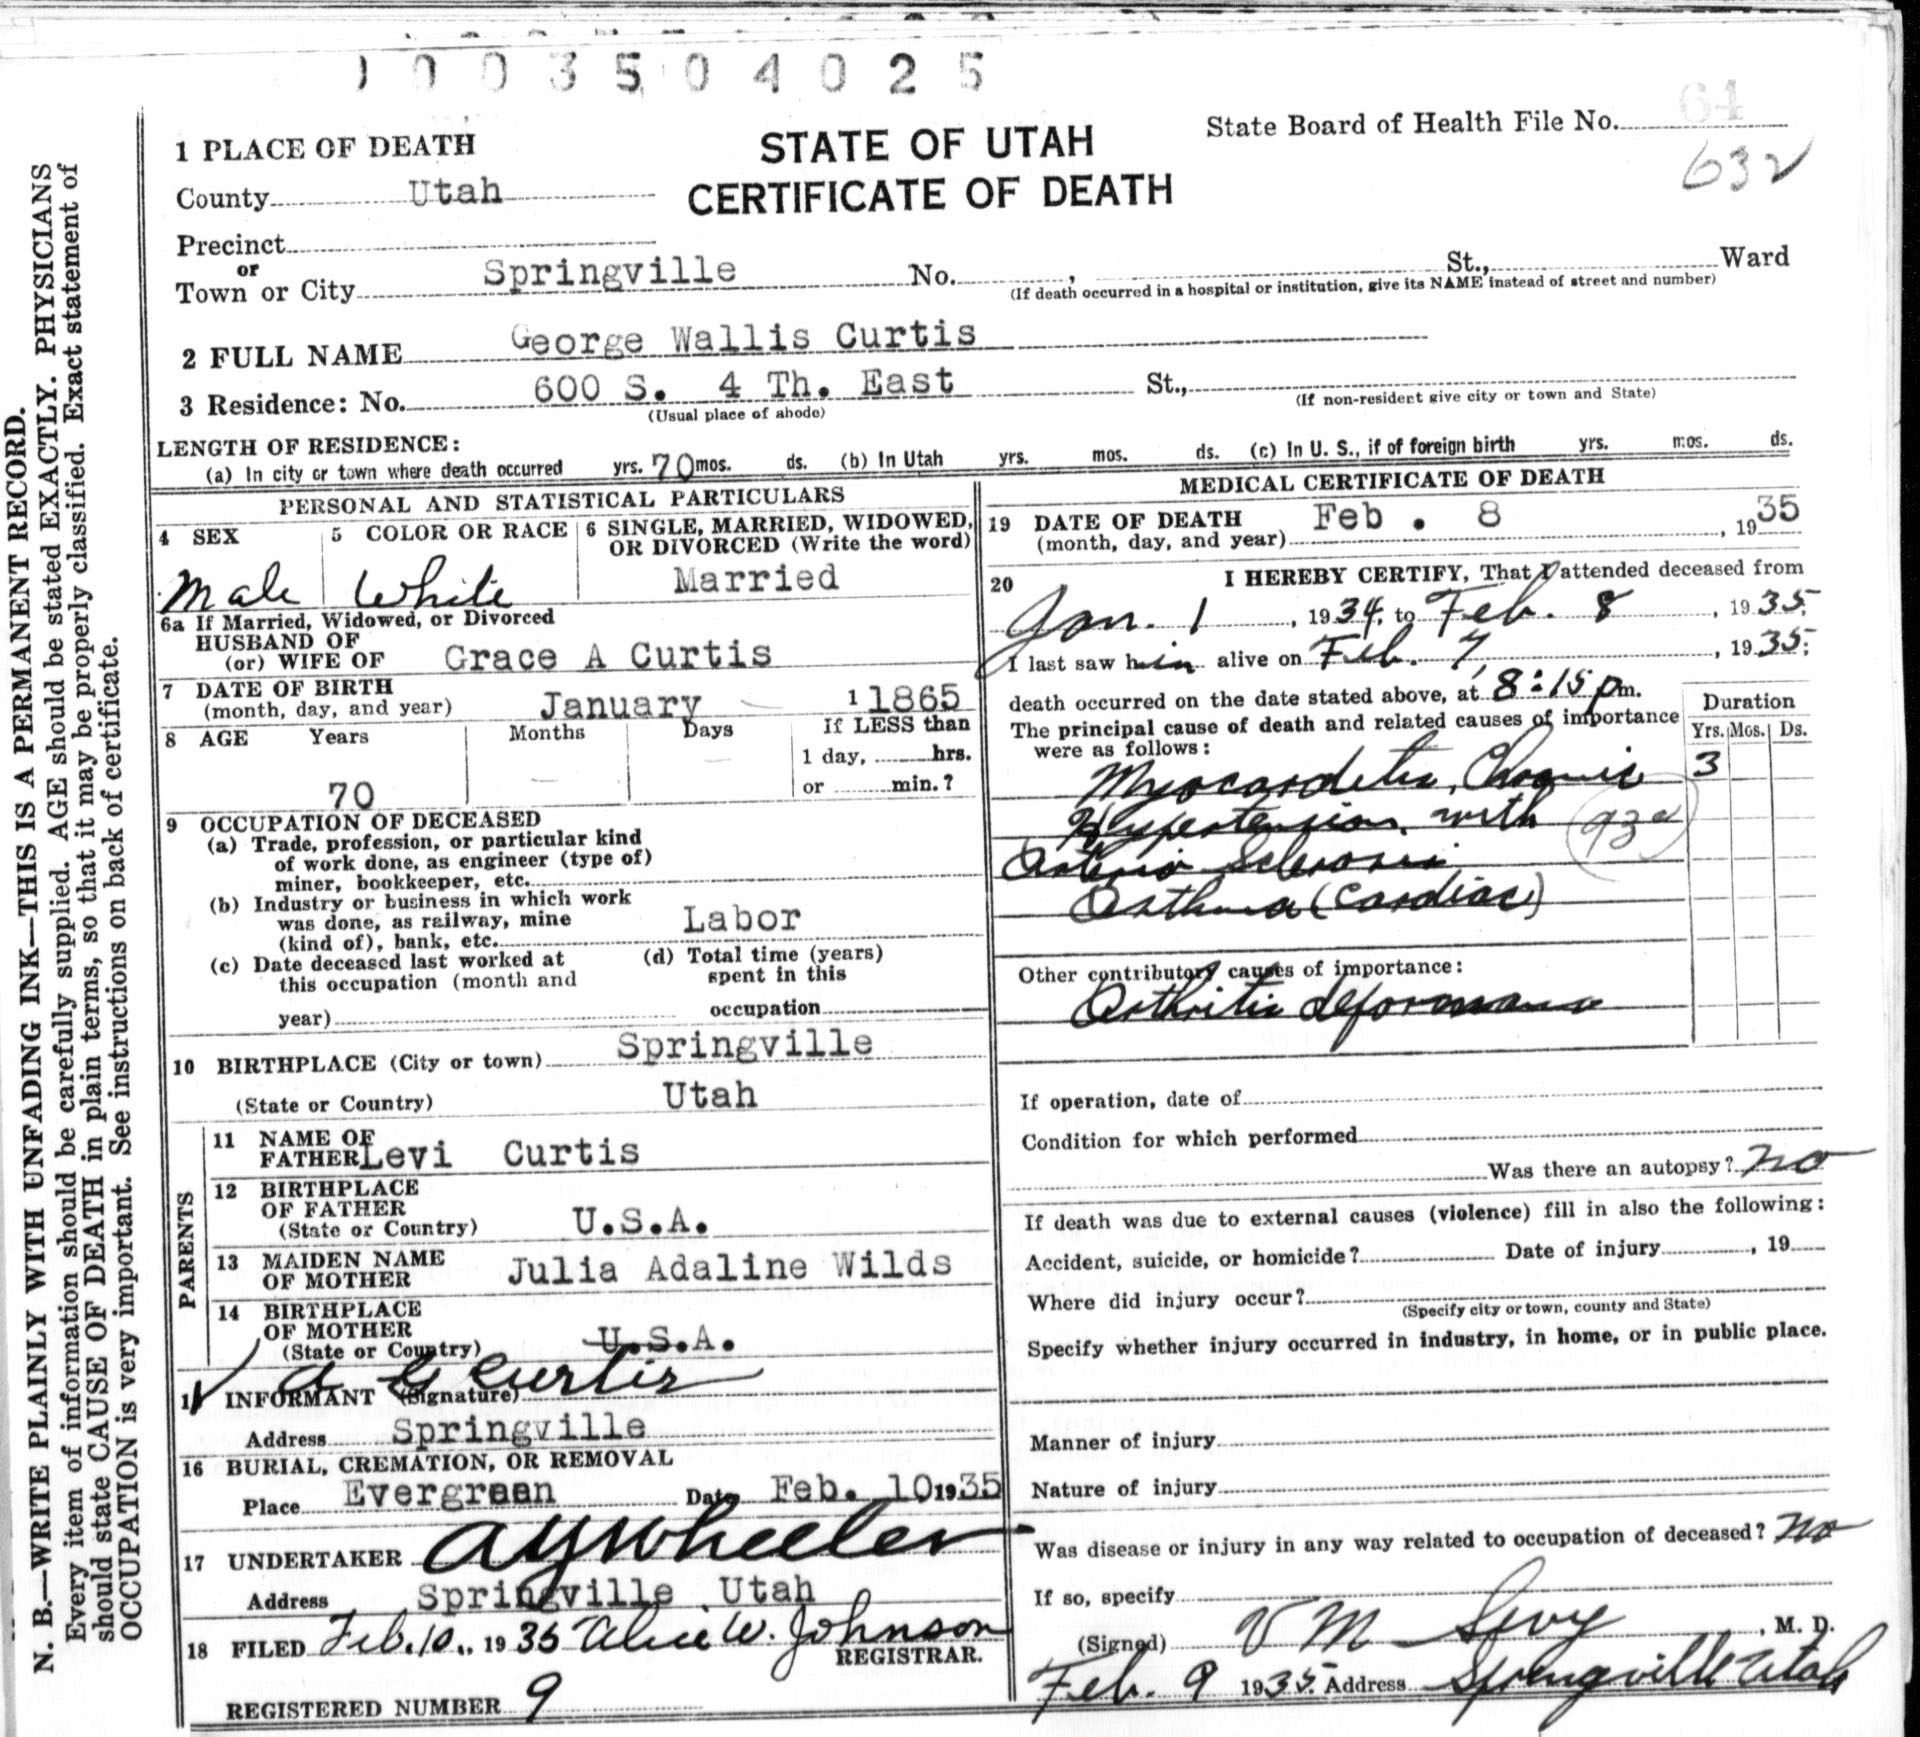 003504025
1 PLACE OF DEATH
STATE OF UTAH
CERTIFICATE OF DEATH
State Board of Health File No. 64
632
County Utah
Precinct
or
Town or City Springville No. , St., Ward
(If death occurred in a hospital or institution, give its NAME instead of street and number)
2 FULL NAME George Wallis Curtis
3 Residence: No. 600 S. 4 Th. East St.,
(Usual place of abode) (If non-resident give city or town and State)
LENGTH OF RESIDENCE:
(a) In city or town where death occurred yrs. 70 mos. ds. (b) In Utah yrs. mos. ds. (c) In U. S., if of foreign birth yrs. mos. ds.
PERSONAL AND STATISTICAL PARTICULARS
4 SEX
Male
5 COLOR OR RACE
White
6 SINGLE, MARRIED, WIDOWED,
OR DIVORCED (Write the word)
Married
6a If Married, Widowed, or Divorced
HUSBAND OF
(or) WIFE OF Grace A Curtis
7 DATE OF BIRTH
(month, day, and year) January 1 1865
8 AGE Years Months Days If LESS than
1 day, hrs.
70 — — or min.?
9 OCCUPATION OF DECEASED
(a) Trade, profession, or particular kind
of work done, as engineer (type of)
miner, bookkeeper, etc.
(b) Industry or business in which work
was done, as railway, mine
(kind of), bank, etc. Labor
(c) Date deceased last worked at
this occupation (month and
year)
(d) Total time (years)
spent in this
occupation
10 BIRTHPLACE (City or town) Springville
(State or Country) Utah
PARENTS
11 NAME OF
FATHER Levi Curtis
12 BIRTHPLACE
OF FATHER
(State or Country) U.S.A.
13 MAIDEN NAME
OF MOTHER Julia Adaline Wilds
14 BIRTHPLACE
OF MOTHER
(State or Country) U.S.A.
INFORMANT (Signature) A G Curtis
Address Springville
16 BURIAL, CREMATION, OR REMOVAL
Place Evergreen Date Feb. 10 1935
17 UNDERTAKER A Y Wheeler
Address Springville Utah
18 FILED Feb. 10., 1935 Alice W. Johnson
REGISTRAR.
REGISTERED NUMBER 9
MEDICAL CERTIFICATE OF DEATH
19 DATE OF DEATH
(month, day, and year) Feb . 8 , 1935
20 I HEREBY CERTIFY, That I attended deceased from
Jan. 1 , 1934, to Feb. 8 , 1935;
I last saw him alive on Feb. 7, , 1935;
death occurred on the date stated above, at 8:15 p m.
The principal cause of death and related causes of importance
were as follows:
Duration
Yrs. Mos. Ds.
Myocarditis, Chronic 3
Hypertension, with
Arterio Sclerosis
Asthma (Cardiac)
Other contributory causes of importance:
Arthritis deformans
If operation, date of
Condition for which performed
Was there an autopsy? no
If death was due to external causes (violence) fill in also the following:
Accident, suicide, or homicide? Date of injury , 19
Where did injury occur?
(Specify city or town, county and State)
Specify whether injury occurred in industry, in home, or in public place.
Manner of injury
Nature of injury
Was disease or injury in any way related to occupation of deceased? no
If so, specify
(Signed) V M Sevy , M. D.
Feb. 9 1935. Address Springville Utah
N. B.—WRITE PLAINLY WITH UNFADING INK—THIS IS A PERMANENT RECORD.
Every item of information should be carefully supplied. AGE should be stated EXACTLY. PHYSICIANS
should state CAUSE OF DEATH in plain terms, so that it may be properly classified. Exact statement of
OCCUPATION is very important. See instructions on back of certificate.